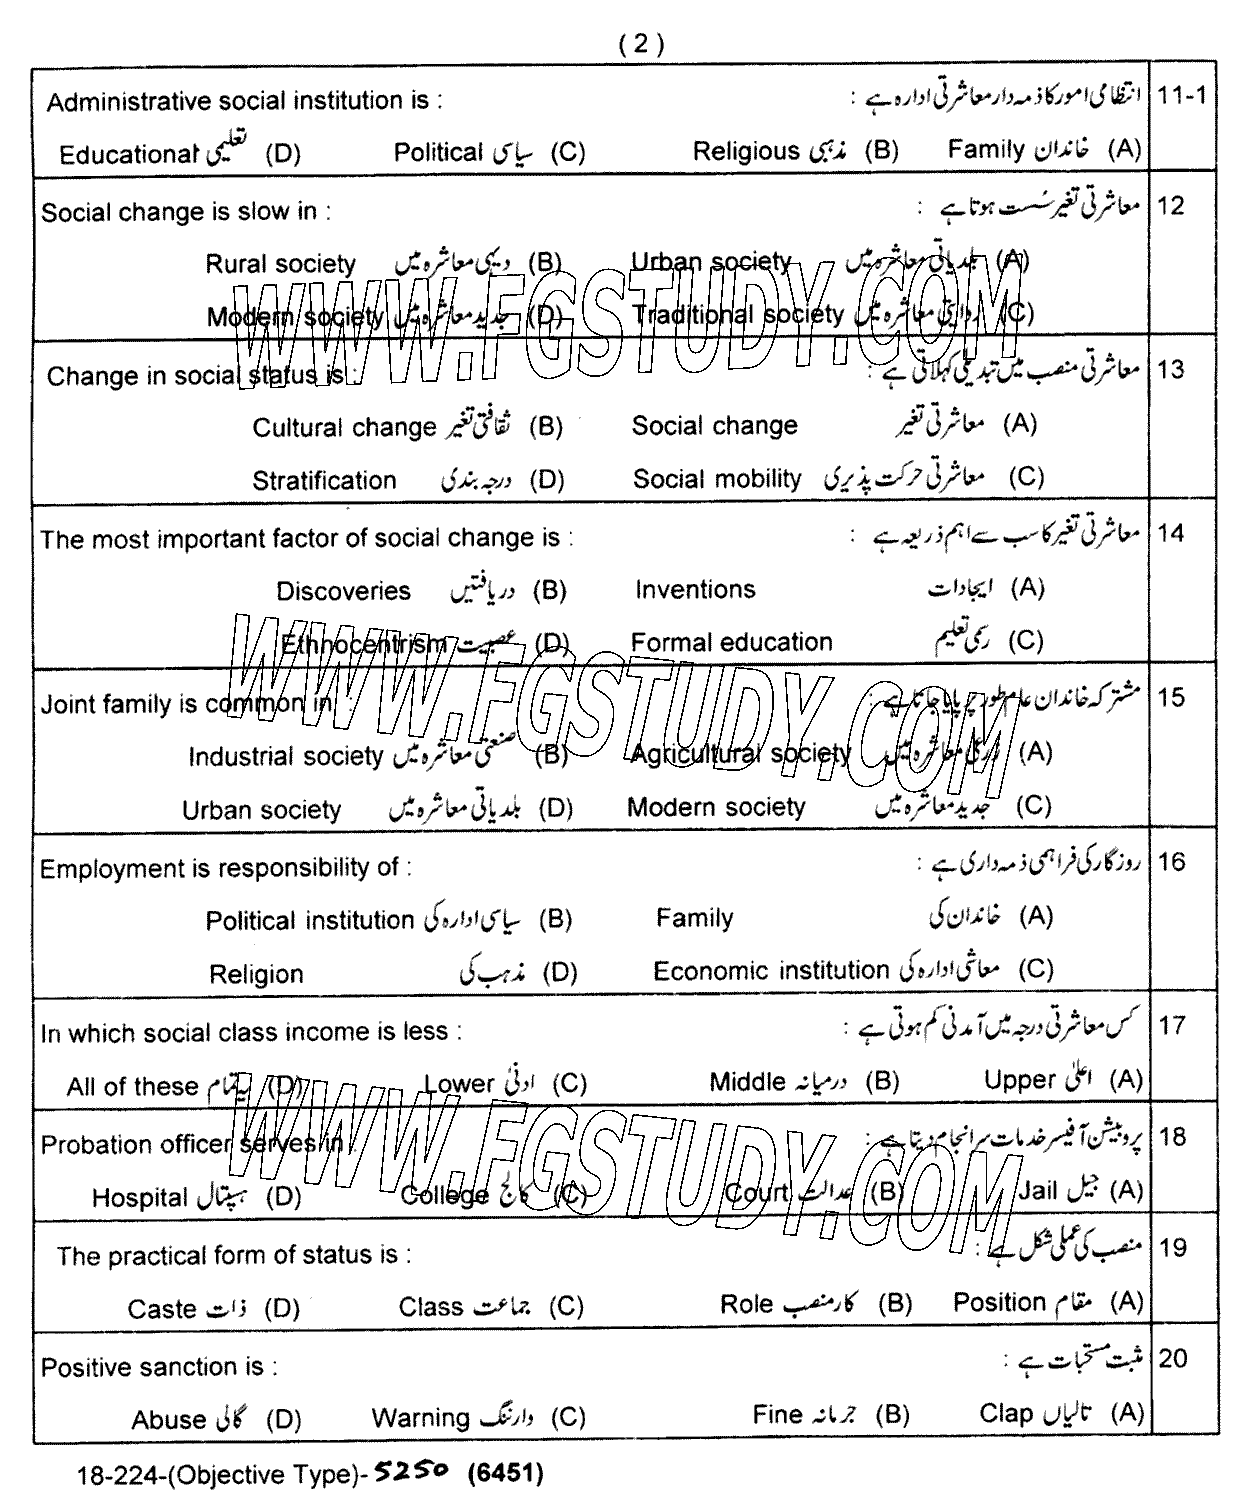 ( 2 )
Administrative social institution is : انتظامی امور کا ذمہ دار معاشرتی ادارہ ہے : 11-1
(A) خاندان Family (B) مذہبی Religious (C) سیاسی Political (D) تعلیمی Educational
Social change is slow in : معاشرتی تغیر سُست ہوتا ہے : 12
(A) بلدیاتی معاشرہ میں Urban society (B) دیہی معاشرہ میں Rural society
(C) روایتی معاشرہ میں Traditional society (D) جدید معاشرہ میں Modern society
Change in social status is : معاشرتی منصب میں تبدیلی کہلاتی ہے : 13
(A) معاشرتی تغیر Social change (B) ثقافتی تغیر Cultural change
(C) معاشرتی حرکت پذیری Social mobility (D) درجہ بندی Stratification
The most important factor of social change is : معاشرتی تغیر کا سب سے اہم ذریعہ ہے : 14
(A) ایجادات Inventions (B) دریافتیں Discoveries
(C) رسمی تعلیم Formal education (D) عصبیت Ethnocentrism
Joint family is common in : مشترکہ خاندان عام طور پر پایا جاتا ہے : 15
(A) زرعی معاشرہ میں Agricultural society (B) صنعتی معاشرہ میں Industrial society
(C) جدید معاشرہ میں Modern society (D) بلدیاتی معاشرہ میں Urban society
Employment is responsibility of : روزگار کی فراہمی ذمہ داری ہے : 16
(A) خاندان کی Family (B) سیاسی ادارہ کی Political institution
(C) معاشی ادارہ کی Economic institution (D) مذہب کی Religion
In which social class income is less : کس معاشرتی درجہ میں آمدنی کم ہوتی ہے : 17
(A) اعلیٰ Upper (B) درمیانہ Middle (C) ادنیٰ Lower (D) یہ تمام All of these
Probation officer serves in : پروبیشن آفیسر خدمات سرانجام دیتا ہے : 18
(A) جیل Jail (B) عدالت Court (C) کالج College (D) ہسپتال Hospital
The practical form of status is : منصب کی عملی شکل ہے : 19
(A) مقام Position (B) کار منصب Role (C) جماعت Class (D) ذات Caste
Positive sanction is : مثبت مستحبات ہے : 20
(A) تالیاں Clap (B) جرمانہ Fine (C) وارننگ Warning (D) گالی Abuse
18-224-(Objective Type)- 5250 (6451)
WWW.FGSTUDY.COM
WWW.FGSTUDY.COM
WWW.FGSTUDY.COM